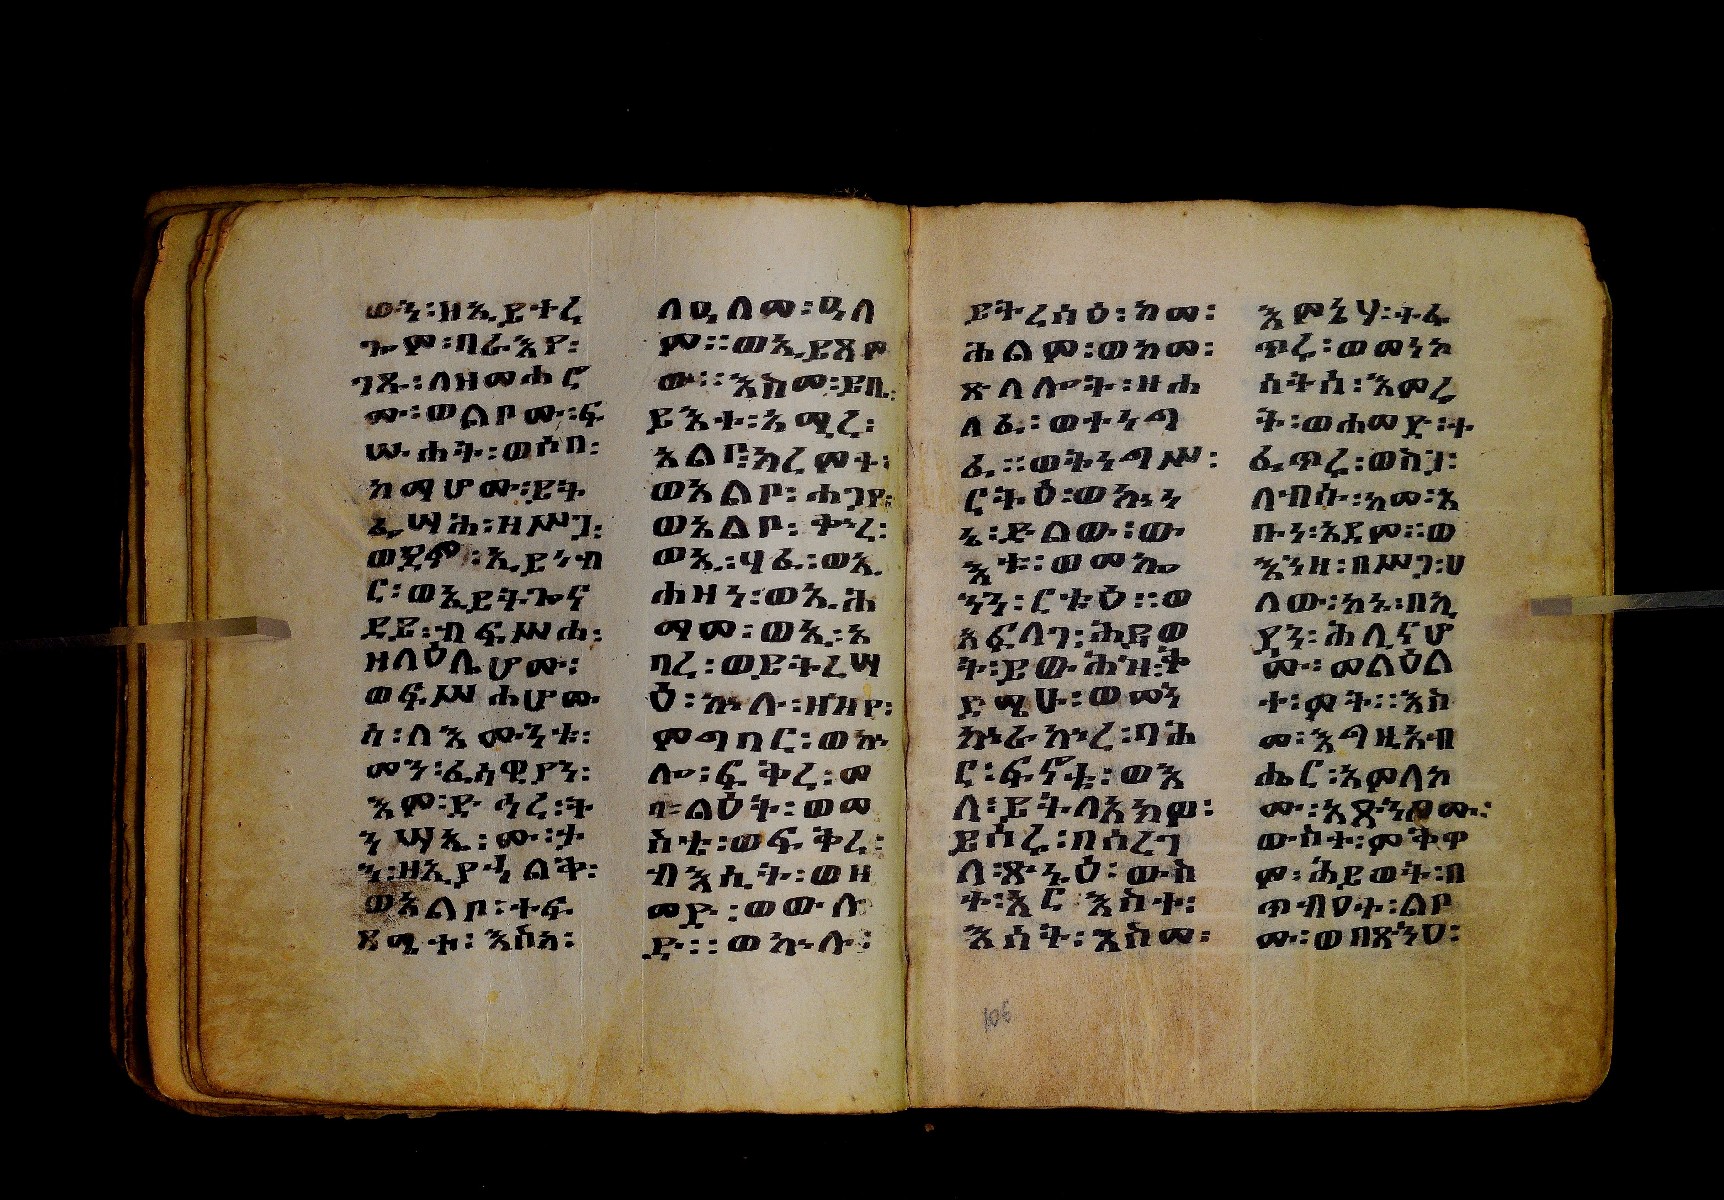 ውን፡ዘኢይተረ
ጐም፡በራእየ፡
ገጹ፡ለዘመሐሮ
ሙ፡ወልቦሙ፡ፍ
ሡሐት፡ወሶበ፡
ከማሆሙ፡ይት
ፌሣሕ፡ዘሥጋ፡
ወደም፡ኢይነብ
ር፡ወኢይትጐና
ደይ፡ብፍሥሐ፡
ዘለዕሌሆሙ፡
ወፍሥሐሆሙ
ሰ፡ለእሙንቱ፡
መን፡ፈሳዊያን፡
እም፡ድኅረ፡ት
ንሣኤ፡ሙታ
ን፡ዘኢያኃልቅ፡
ወአልቦ፡ተፍ
ጻሜተ፡እስከ፡
ለዓለመ፡ዓለ
ም፡፡ወኢይጸም
ው፡፡እስመ፡ይቤ፡
ይእተ፡አሚረ፡
አልቦ፡አረምተ፡
ወአልቦ፡ሐጋየ፡
ወአልቦ፡ቍረ፡
ወኢ፡ሃፈ፡ወኢ
ሐዘን፡ወኢሕ
ማመ፡ወኢ፡እ
ባረ፡ወይትረሣ
ዕ፡ኵሉ፡ዘዝየ፡
ምግባር፡ወኵ
ሎ፡ፍቅረ፡መ
ባልዕት፡ወመ
ስቴ፡ወፍቅረ፡
ብእሲት፡ወዘ
መድ፡ወውሉ
ድ፡፡ወኵሉ፡
ይትረሳዕ፡ከመ፡
ሕልም፡ወከመ፡
ጽላሎት፡ዘሐ
ለፈ፡ወተነግ
ፈ፡፡ወትነግሥ፡
ርትዕ፡ወኵነ
ኔ፡ድልው፡ው
እቱ፡ወመኰ
ንን፡ርቱዕ፡፡ወ
አፍላገ፡ሕይወ
ት፡ይውሕዝ፡ቅ
ድሜሁ፡ወመን
ኵራኵረ፡ባሕ
ር፡ፍኖቱ፡ወእ
ለ፡ይትለአክዎ፡
ይሰሪ፡በሰረገ
ላ፡ጽኑዕ፡ውስ
ተ፡አር እስተ፡
እሳት፡እስመ፡
እምኔሃ፡ተፈ
ጥሪ፡ወመነኮ
ሳትሰ፡እመሬ
ት፡ወሐመድ፡ተ
ፈጥረ፡ወስጋ፡
ለብሱ፡ከመ፡አ
ቡነ፡አደም፡፡ወ
እንዘ፡በሥጋ፡ሀ
ለው፡ኮኑ፡በኢ
ያን፡ሕሊናሆ
ሙ፡መልዕል
ተ፡ሞት፡፡እስ
መ፡እግዚአብ
ሔር፡አምላከ
ሙ፡አጽንዐሙ፡
ውስተ፡ምቅዋ
ም፡ሕይወት፡በ
ጥብዐት፡ልቦ
ሙ፡ወበጽንዐ፡
106